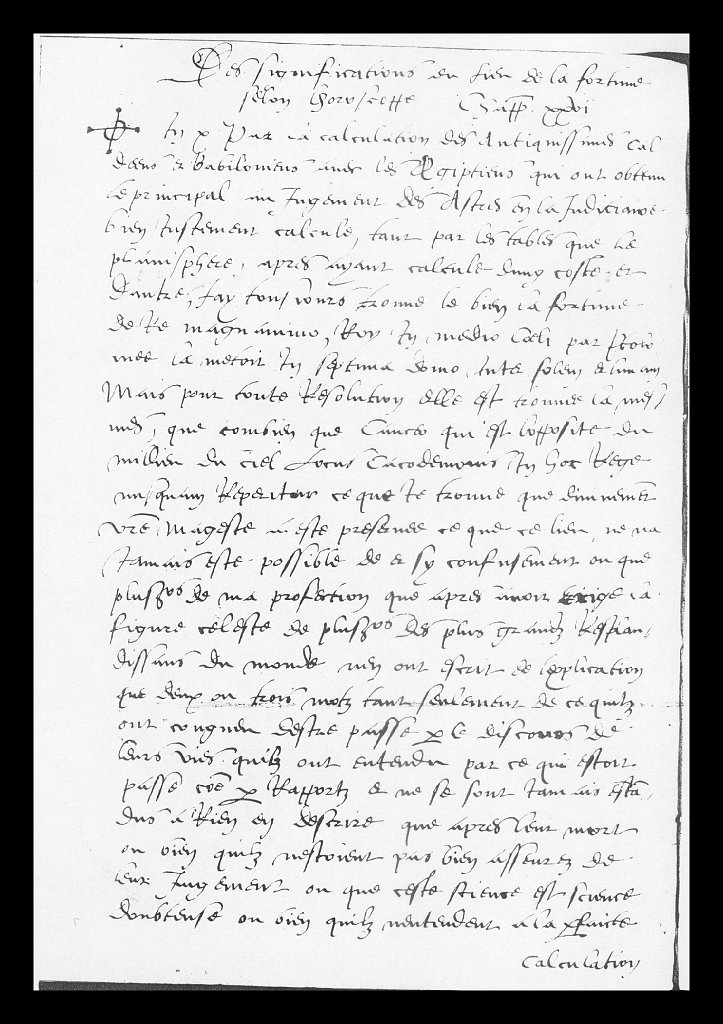 Des significations du lieu de la fortune
selon horoscoppe Chapp. xxvi
In x Par la calculation des Antiquissimes Cal
deens et Babiloniens avec les Ægiptiens qui ont obtenu
le principal au Jugement des Astres en la Judiciaire
bien justement calcule, tant par les tables que le
planisphere, apres ayant calcule dung coste et
dautre, Jay tousjours trouve le lieu la fortune
de te magnanimo, Roy In medio Cœli par
mee la metoit In septima domo, inter solem et lunam
Mais pour toute Resolution elle est trouvee la, mes
mes, que combien que Cancer qui est lopposite du
millieu du ciel Locus Cacodemonis In hoc Rege
nusquam Reperitur ce que Je trouve que
vre Mageste a este preservee ce que ce lieu, ne na
Jamais este possible de et sy confusement ou que
pluss de ma profection que apres avoir erige la
figure celeste de pluss des plus grandz Resplan,
dissans du monde nen ont escrit de lexplication
que deux ou trois motz tant seulement de ce quilz
ont congneu destre passe p le discours de
leurs vies quilz ont entendu par ce qui estoit
passe coe p Rapportz et ne se sont Jamais esta,
dus a Rien en descrire que apres leur mort
ou bien quilz nestoient pas bien asseurez de
leur Jugement ou que ceste science est science
doubteuse ou bien quilz nentendent a la pfaicte
Calculation